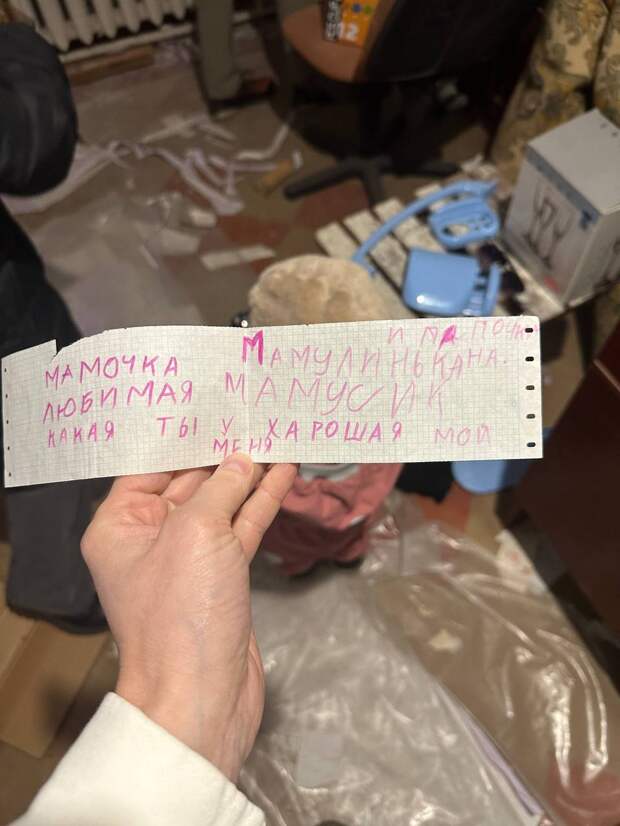 МАМОЧКА
ЛЮБИМАЯ
КАКАЯ ТЫ У
МЕНЯ
ХАРОШАЯ МОЙ
МАМУЛИНЬКАНА.
МАМУСИК
И ПАПОЧКА
12